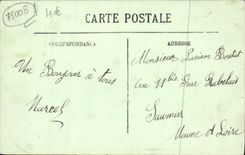 75008
4€
CARTE POSTALE
CORRESPONDANCE
ADRESSE
Monsieur Lucien
Un Bonjour à tous
Au 11 bis Rue Rabelais
Marcel
Saumur
Maine et Loire